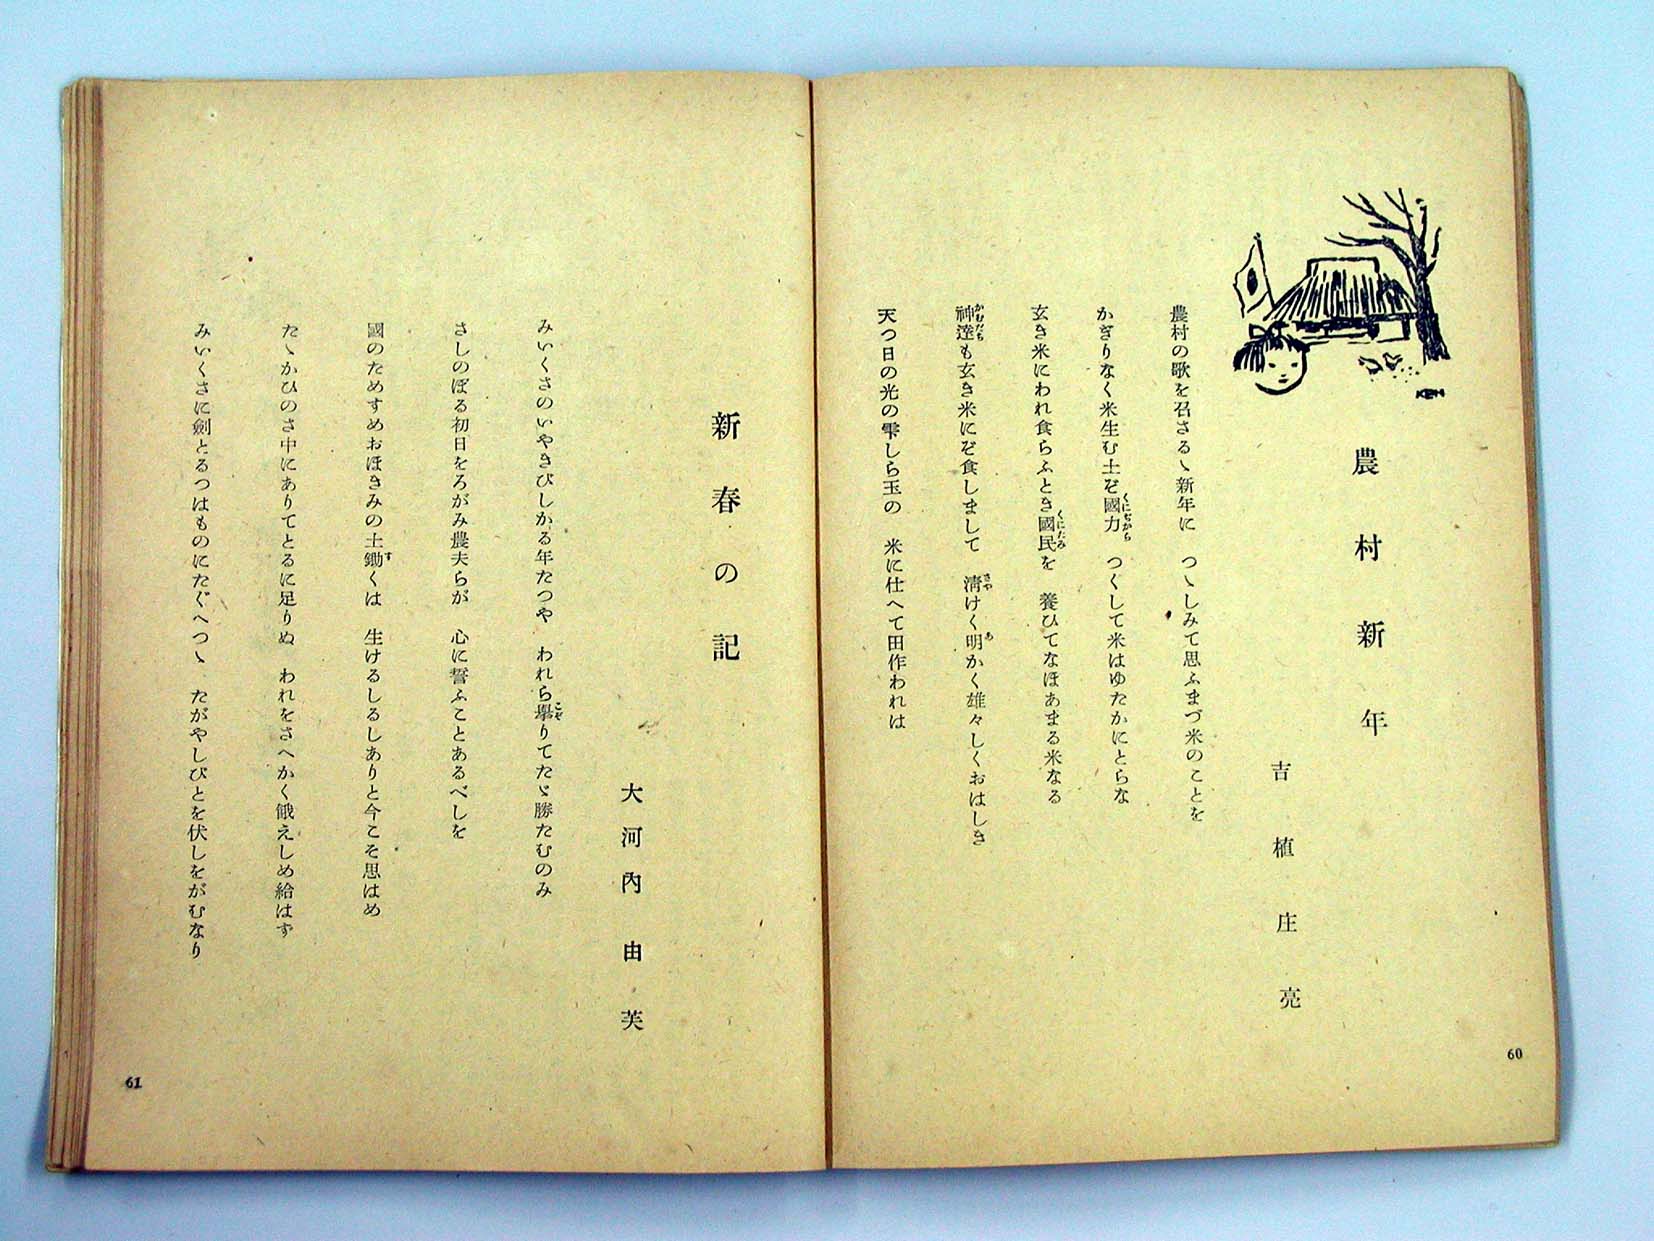 農村新年
吉植庄亮
農村の歌を召さるゝ新年に　つゝしみて思ふまづ米のことを
かぎりなく米生む土ぞ國力　つくして米はゆたかにとらな
くにぢから
玄き米にわれ食らふとき國民を　養ひてなほあまる米なる
くにたみ
神達も玄き米にぞ食しまして　淸けく明かく雄々しくおはしき
かむたち
さや
あ
天つ日の光の雫しら玉の　米に仕へて田作われは
60
新春の記
大河內由芙
みいくさのいやきびしかる年たつや　われら擧りてたゞ勝たむのみ
こぞ
さしのぼる初日をろがみ農夫らが　心に誓ふことあるべしを
國のためすめおほきみの土鋤くは　生けるしるしありと今こそ思はめ
す
たゝかひのさ中にありてとるに足りぬ　われをさへかく餓えしめ給はず
みいくさに劍とるつはものにたぐへつゝ　たがやしびとを伏しをがむなり
61